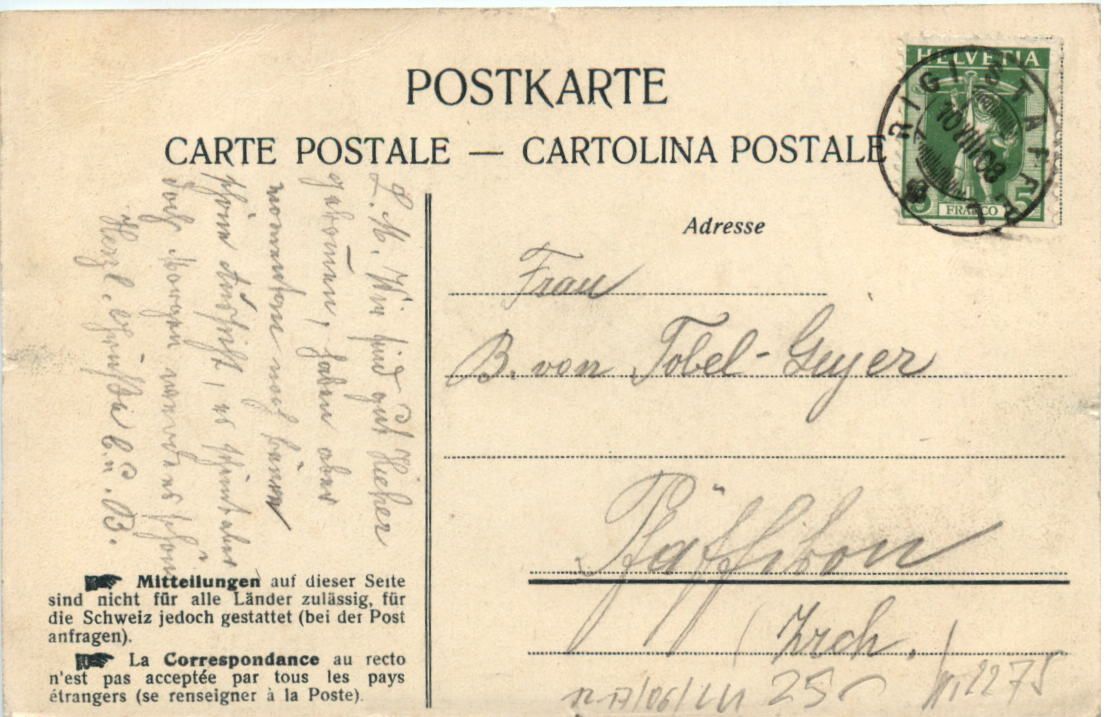 POSTKARTE
CARTE POSTALE — CARTOLINA POSTALE
HELVETIA
5 FRANCO 5
RIGI STAFFEL
10 VIII 08
Adresse
Frau
B. von Tobel-Geyer
Pfäffikon
(Zrch.)
L. M. Wir sind gut hieher
gekommen, haben aber
momentan noch keine
schöne Aussicht, es scheint aber
doch Morgen werde es schön
Herzl. Grüsse E. u. B.
Mitteilungen auf dieser Seite
sind nicht für alle Länder zulässig, für
die Schweiz jedoch gestattet (bei der Post
anfragen).
La Correspondance au recto
n'est pas acceptée par tous les pays
étrangers (se renseigner à la Poste).
25
2275